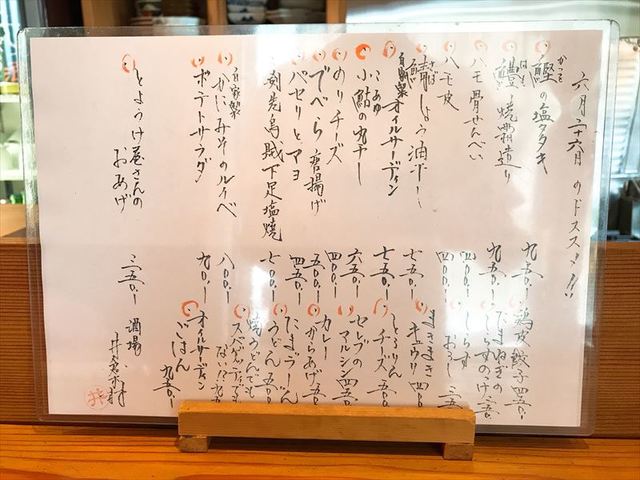 六月二十六日のドススメ!!
鰹の塩タタキ 九五〇.-
鱧焼霜造り 九五〇.-
ハモ骨せんべい 四〇〇.-
ハモ皮 四〇〇.-
しょう油干し 七五〇.-
自家製オイルサーディン 七五〇.-
小鮎の丸干し 六五〇.-
のりチーズ 四〇〇.-
でべら唐揚げ 五〇〇.-
パセリとマヨ 四五〇.-
剣先烏賊下足塩焼 七〇〇.-
自家製かにみそのルイベ 八〇〇.-
ポテトサラダ
とようけ屋さんのおあげ 三五〇.-
鶏皮餃子 四五〇.-
たまねぎのしらすのけ
しらすおろし
まきまきキュウリ 四〇〇.-
とろりんチーズ 五〇〇
セレブのマルシン 四五〇.-
カレーからあげ
たまごーレん
うどん 五〇〇
焼うどんでもスパゲッティでもない
オイルサーディンごはん 九五〇.-
酒場 井倉木材